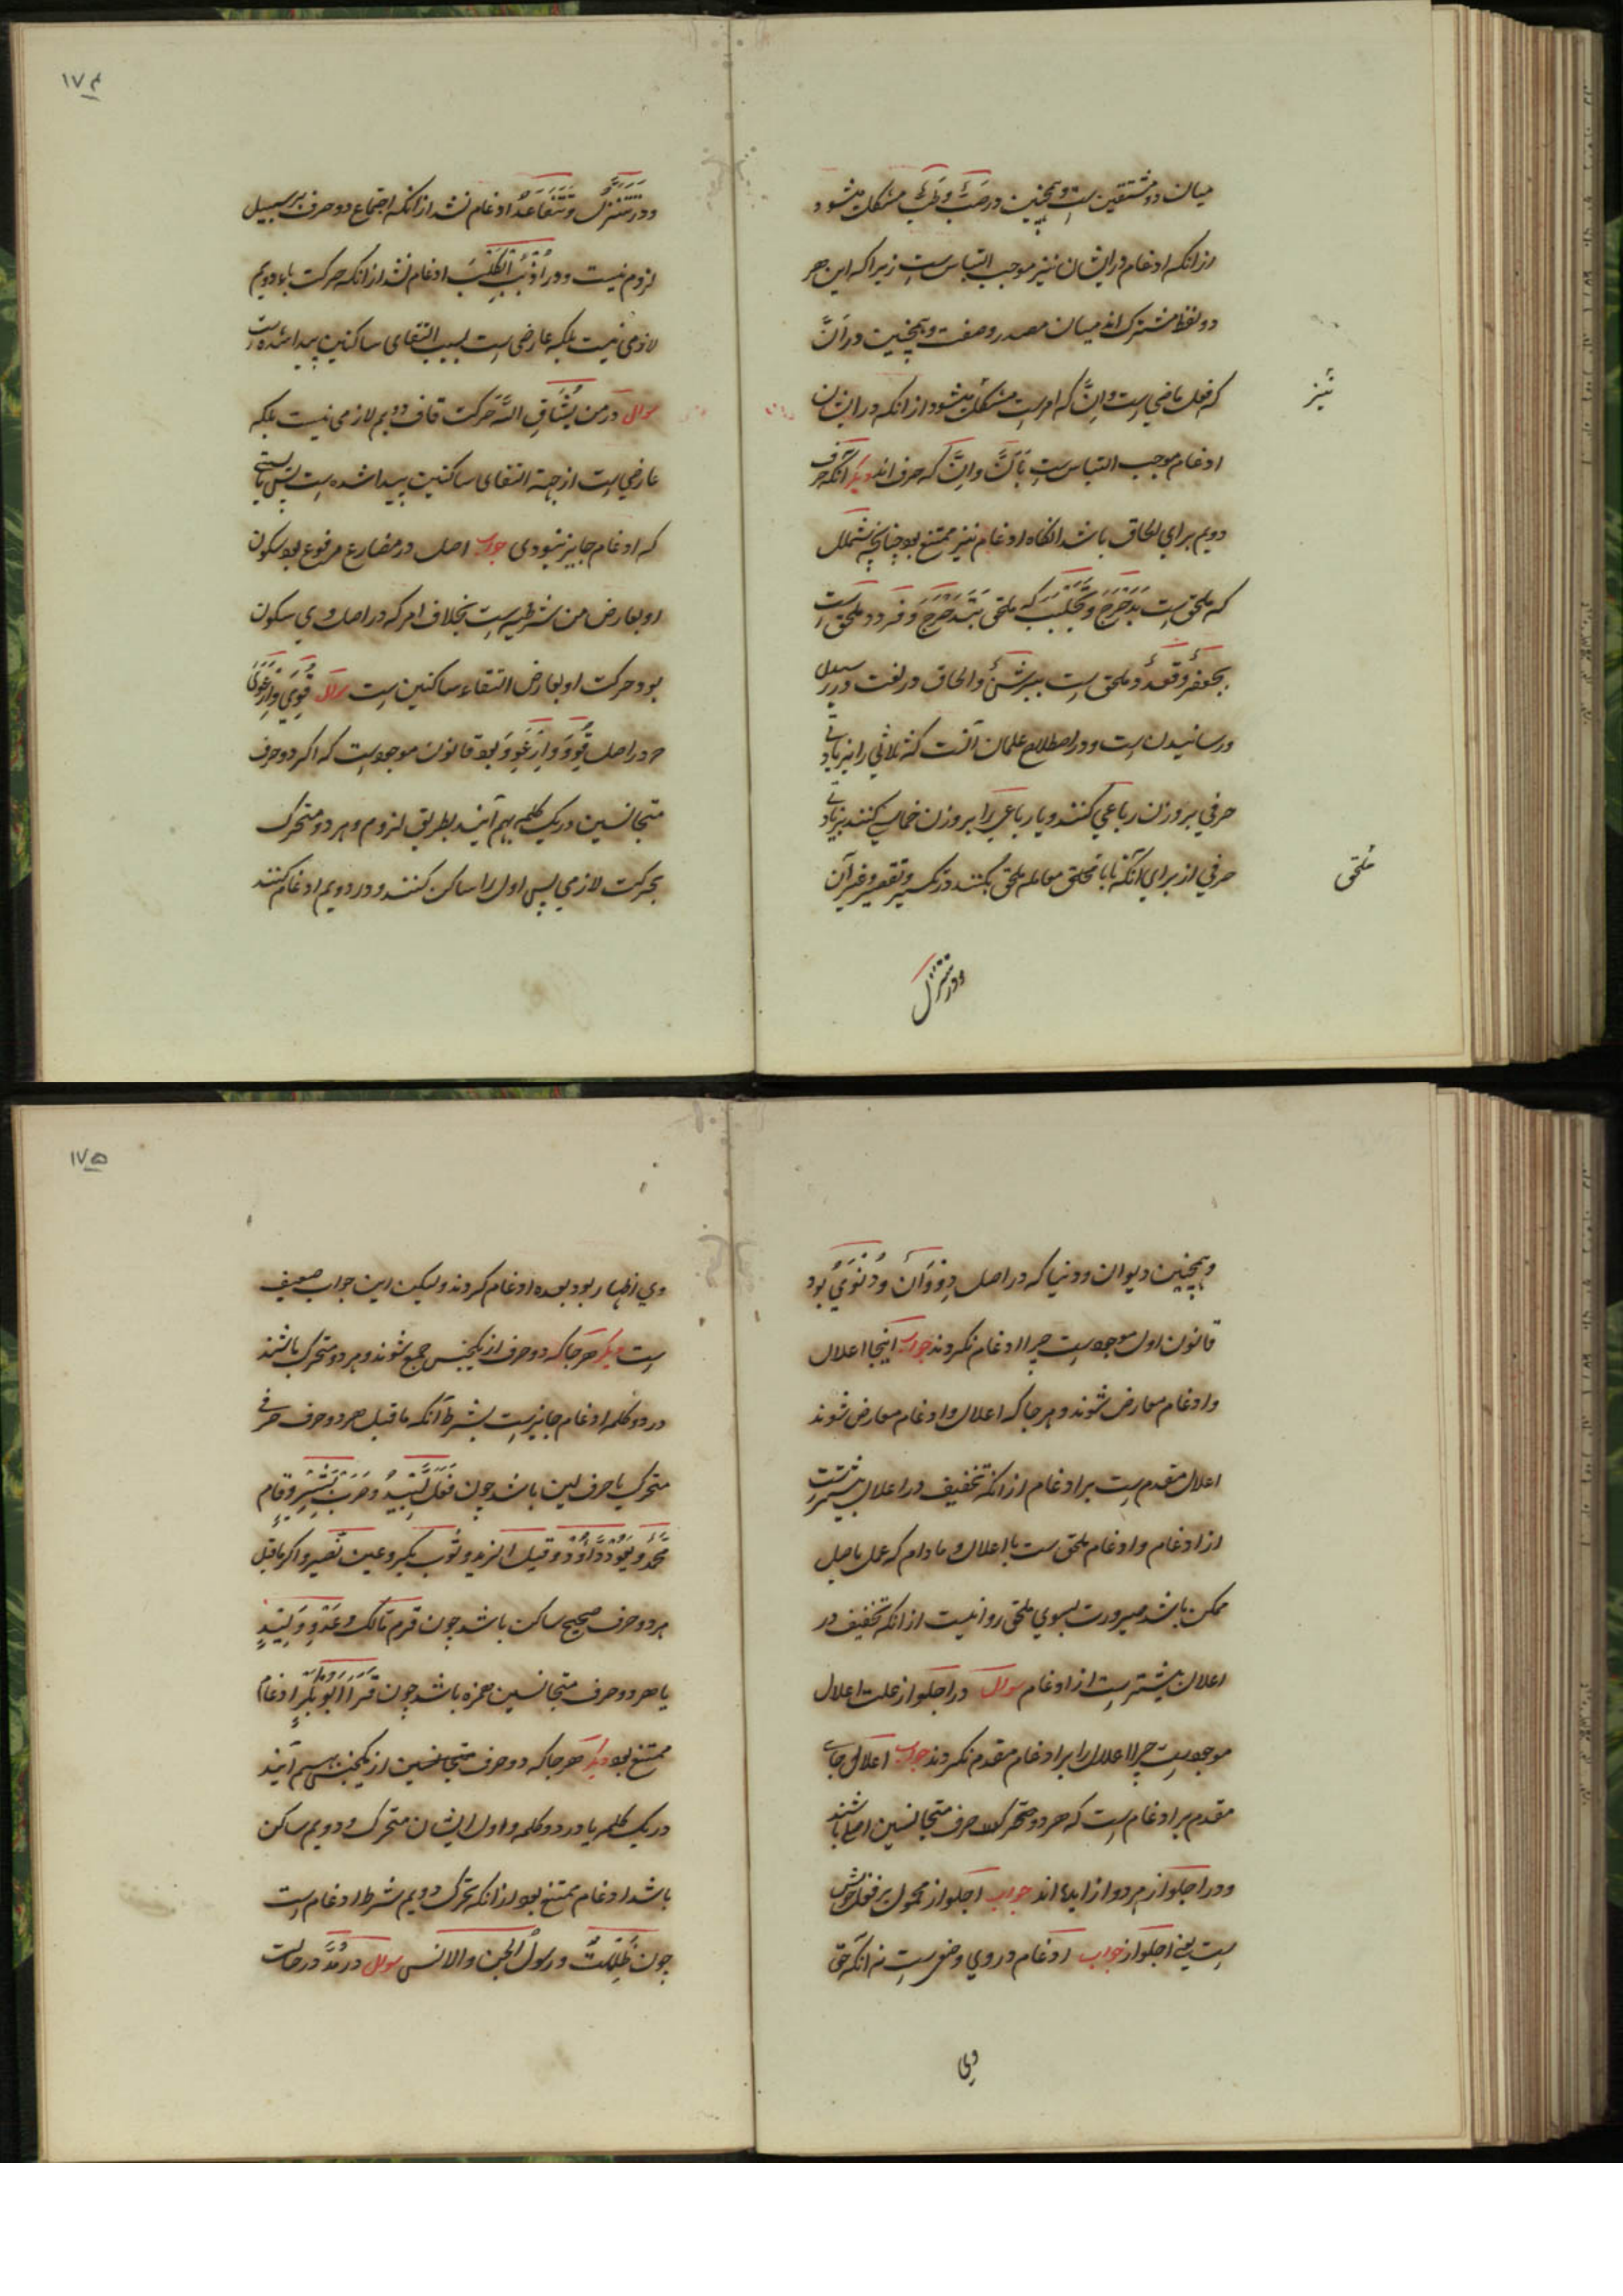 میان دو مشتقین ست و همچنین در صَبَّ و طَبَّ مشکل میشود
ازانکه ادغام در ایشان نیز موجب التباس ست زیرا که این هر
دو لفظ مشترک اند میان مصدر و صفت و همچنین در اَنَّ
نیز
که فعل ماضی است و اِنَّ که امر ست مشکل میشود از انکه در ایشان
ادغام موجب التباس ست بَاَنَّ و اِنَّ که حرف اند دیگر آنکه حرف
دویم برای الحاق باشد انگاه ادغام نیز ممتنع بود چنانچه شملل
که ملحق ست بدَحْرَجَ و تَجَلْبَبَ که ملحق بتَدَحْرَجَ و قردد ملحق ست
بجعفر و قعدد ملحق ست ببرثن و الحاق در لغت در رسیدن
و رسانیدن ست و در اصطلاح علمان آنست که ثلاثی را بزیادتی
حرفی بر وزن رباعی کنند و یا رباعی را بر وزن خماسی کنند بزیادتی
حرفی از برای آنکه تا با ملحق معامله ملحق بکنند در تکسیر و تصغیر و غیر آن
ملحق
ودر تتنزل
۱۷۴
ودر تَتَنَزَّلُ و تَتَقَاعَدُ ادغام نشد ازانکه اجتماع دو حرف بر سبیل
لزوم نیست و در اُذْبُبِ الْکَلْبَ ادغام نشد ازانکه حرکت باء دویم
لازمی نیست بلکه عارضی ست بسبب التقای ساکنین پیدا شده است
سوال در من یُشَاقِّ اللّٰه حرکت قاف دویم لازمی نیست بلکه
عارضی ست از جهة التقای ساکنین پیدا شده ست پس بایستی
که ادغام جایز نبودی جواب اصل در مضارع مرفوع بود سکون
او بعارض من شرطیه ست بخلاف امر که در اصل وی سکون
بود حرکت او بعارض التقاء ساکنین ست سوال قَوِیَ و اِرْعَوَی
که در اصل قَوِوَ و اِرْعَوَوَ بود قانون موجود ست که اگر دو حرف
متجانسین در یک کلمه بهم آیند بطریق لزوم و هر دو متحرک
بحرکت لازمی پس اول را ساکن کنند و در دویم ادغام کنند
و همچنین دیوان و دنیا که در اصل دِوْوَان و دُنْوَیُ بود
قانون اول موجود ست چرا ادغام نکردند جواب اینجا اعلال
و ادغام معارض شوند و هر جا که اعلال و ادغام معارض شوند
اعلال مقدم ست بر ادغام ازانکه تخفیف در اعلال بیشترست
از ادغام و ادغام ملحق ست با اعلال و مادام که عمل باصل
ممکن باشد ضرورت بسوی ملحق روا نیست ازانکه تخفیف در
اعلال بیشترست از ادغام سوال در اجلواز علت اعلال
موجود ست چرا اعلال را بر ادغام مقدم نکردند جواب اعلال جای
مقدم بر ادغام ست که هر دو متحرک حرف متجانسین اصلی باشند
و در اجلواز هر دو از زایده اند جواب اجلواز محمول بر فعل خویش
ست یعنی اجلواز جواب ادغام در وی وضعی ست نه آنکه حق
وی
۱۷۵
وی اظهار بود بعده ادغام کردند ولیکن این جواب ضعیف
ست دیگر هر جا که دو حرف از یکجنس جمع شوند و هر دو متحرک باشند
در دو کلمه ادغام جایز ست بشرط آنکه ماقبل هر دو حرف حرفی
متحرک یا حرف لین باشد چون فَعَلَ لَّبِیدُ و ضَرَبَ بَّشِیر و قام
مّحمد و یعود دّاود و قیل لزید و ثوب بکر و عین نّصیر و اگر ماقبل
هر دو حرف صحیح ساکن باشد چون قرم مالک و عَدُوِّ وَلِیدٍ
یا هر دو حرف متجانسین همزه باشد چون قَرَاَ اَبُو بَکْرٍ ادغام
ممتنع بود دیگر هر جا که دو حرف متجانسین از یکجنس بهم آیند
در یک کلمه یا در دو کلمه و اول ایشان متحرک و دویم ساکن
باشد ادغام ممتنع بود ازانکه تحرک دویم شرط ادغام ست
چون ظَلِلْتُ و رسول الجن والانس سوال در مُدَّ در حالت